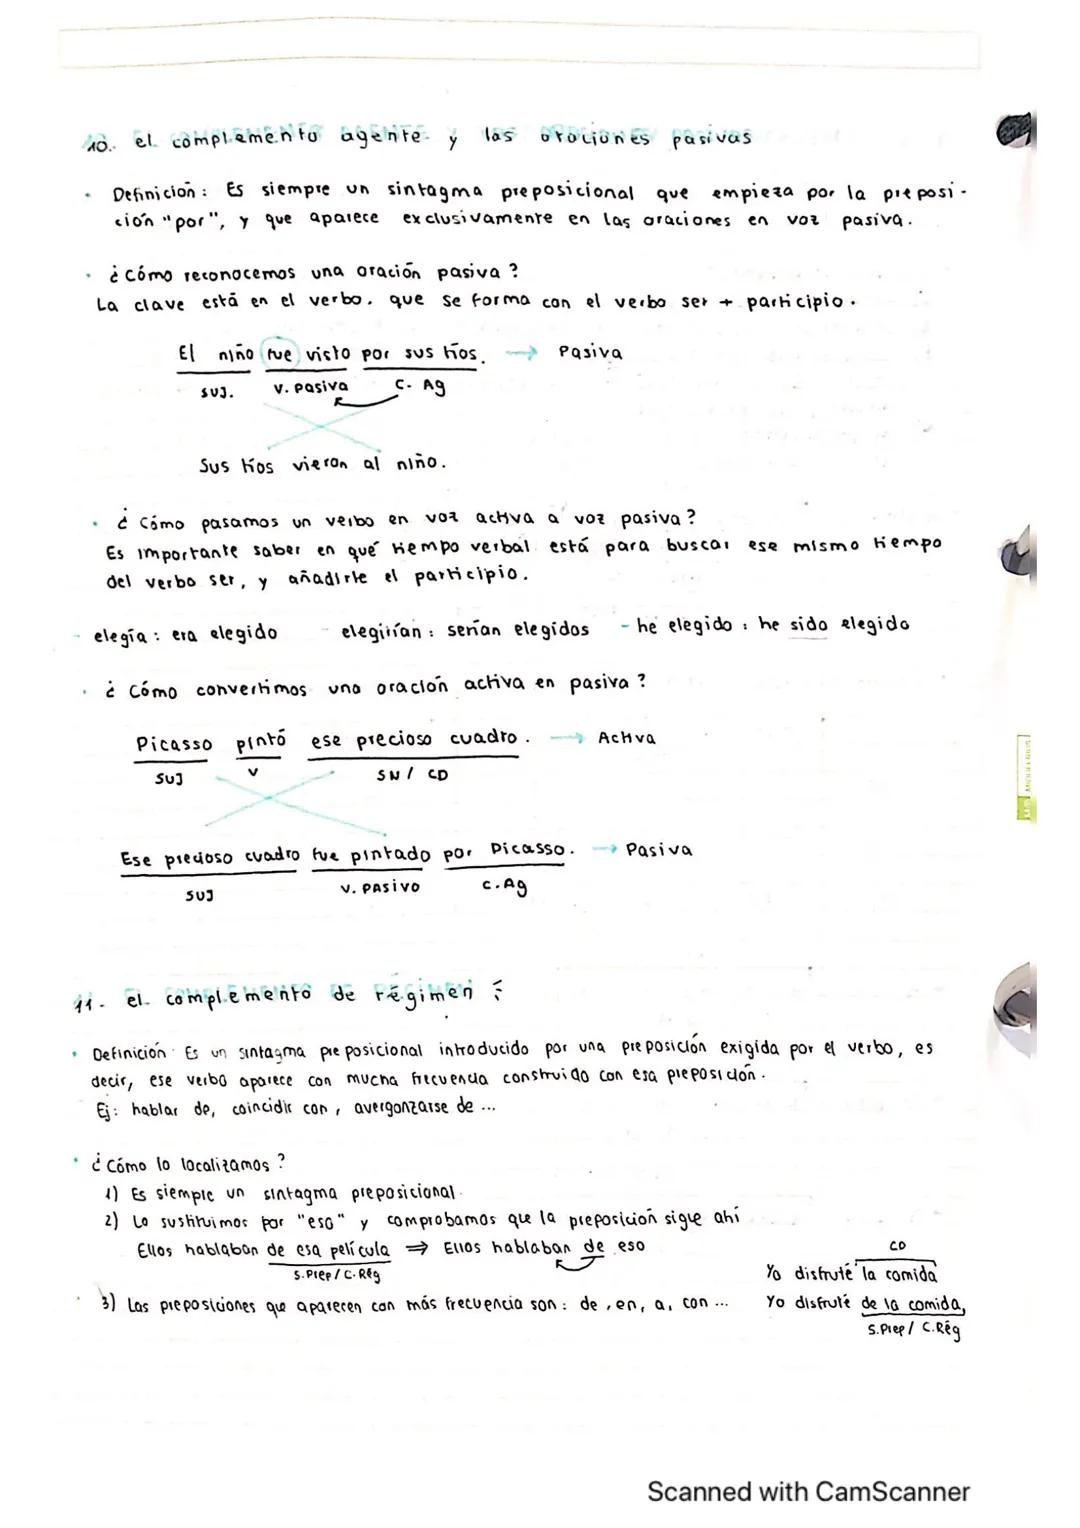 10. el complemento agente y las oraciones pasivas
· Definición: Es siempre un sintagma preposicional que empieza por la preposi-
ción "por", y que aparece exclusivamente en las oraciones en voz pasiva.
· ¿Cómo reconocemos una oración pasiva?
La clave está en el verbo. que se forma con el verbo ser + participio.
El niño fue visto por sus tíos. → Pasiva
SUJ. V. Pasiva C. Ag
Sus tíos vieron al niño.
· ¿Cómo pasamos un verbo en voz activa a voz pasiva?
Es importante saber en qué tiempo verbal está para buscar ese mismo tiempo
del verbo ser, y añadirle el participio.
- elegía: era elegido - elegirían: serían elegidos - he elegido: he sido elegido
· ¿Cómo convertimos una oración activa en pasiva?
Picasso pintó ese precioso cuadro. → Activa
SUJ V SN / CD
Ese precioso cuadro fue pintado por Picasso. → Pasiva
SUJ V. PASIVO C.Ag
11. el complemento de régimen:
· Definición: Es un sintagma preposicional introducido por una preposición exigida por el verbo, es
decir, ese verbo aparece con mucha frecuencia construido con esa preposición.
Ej: hablar de, coincidir con, avergonzarse de ...
· ¿Cómo lo localizamos?
1) Es siempre un sintagma preposicional.
2) Lo sustituimos por "eso" y comprobamos que la preposición sigue ahí
Ellos hablaban de esa película ⇒ Ellos hablaban de eso
S.Prep / C.Rég
3) Las preposiciones que aparecen con más frecuencia son: de, en, a, con ...
CD
Yo disfruté la comida
Yo disfruté de la comida,
S.Prep / C.Rég
Scanned with CamScanner